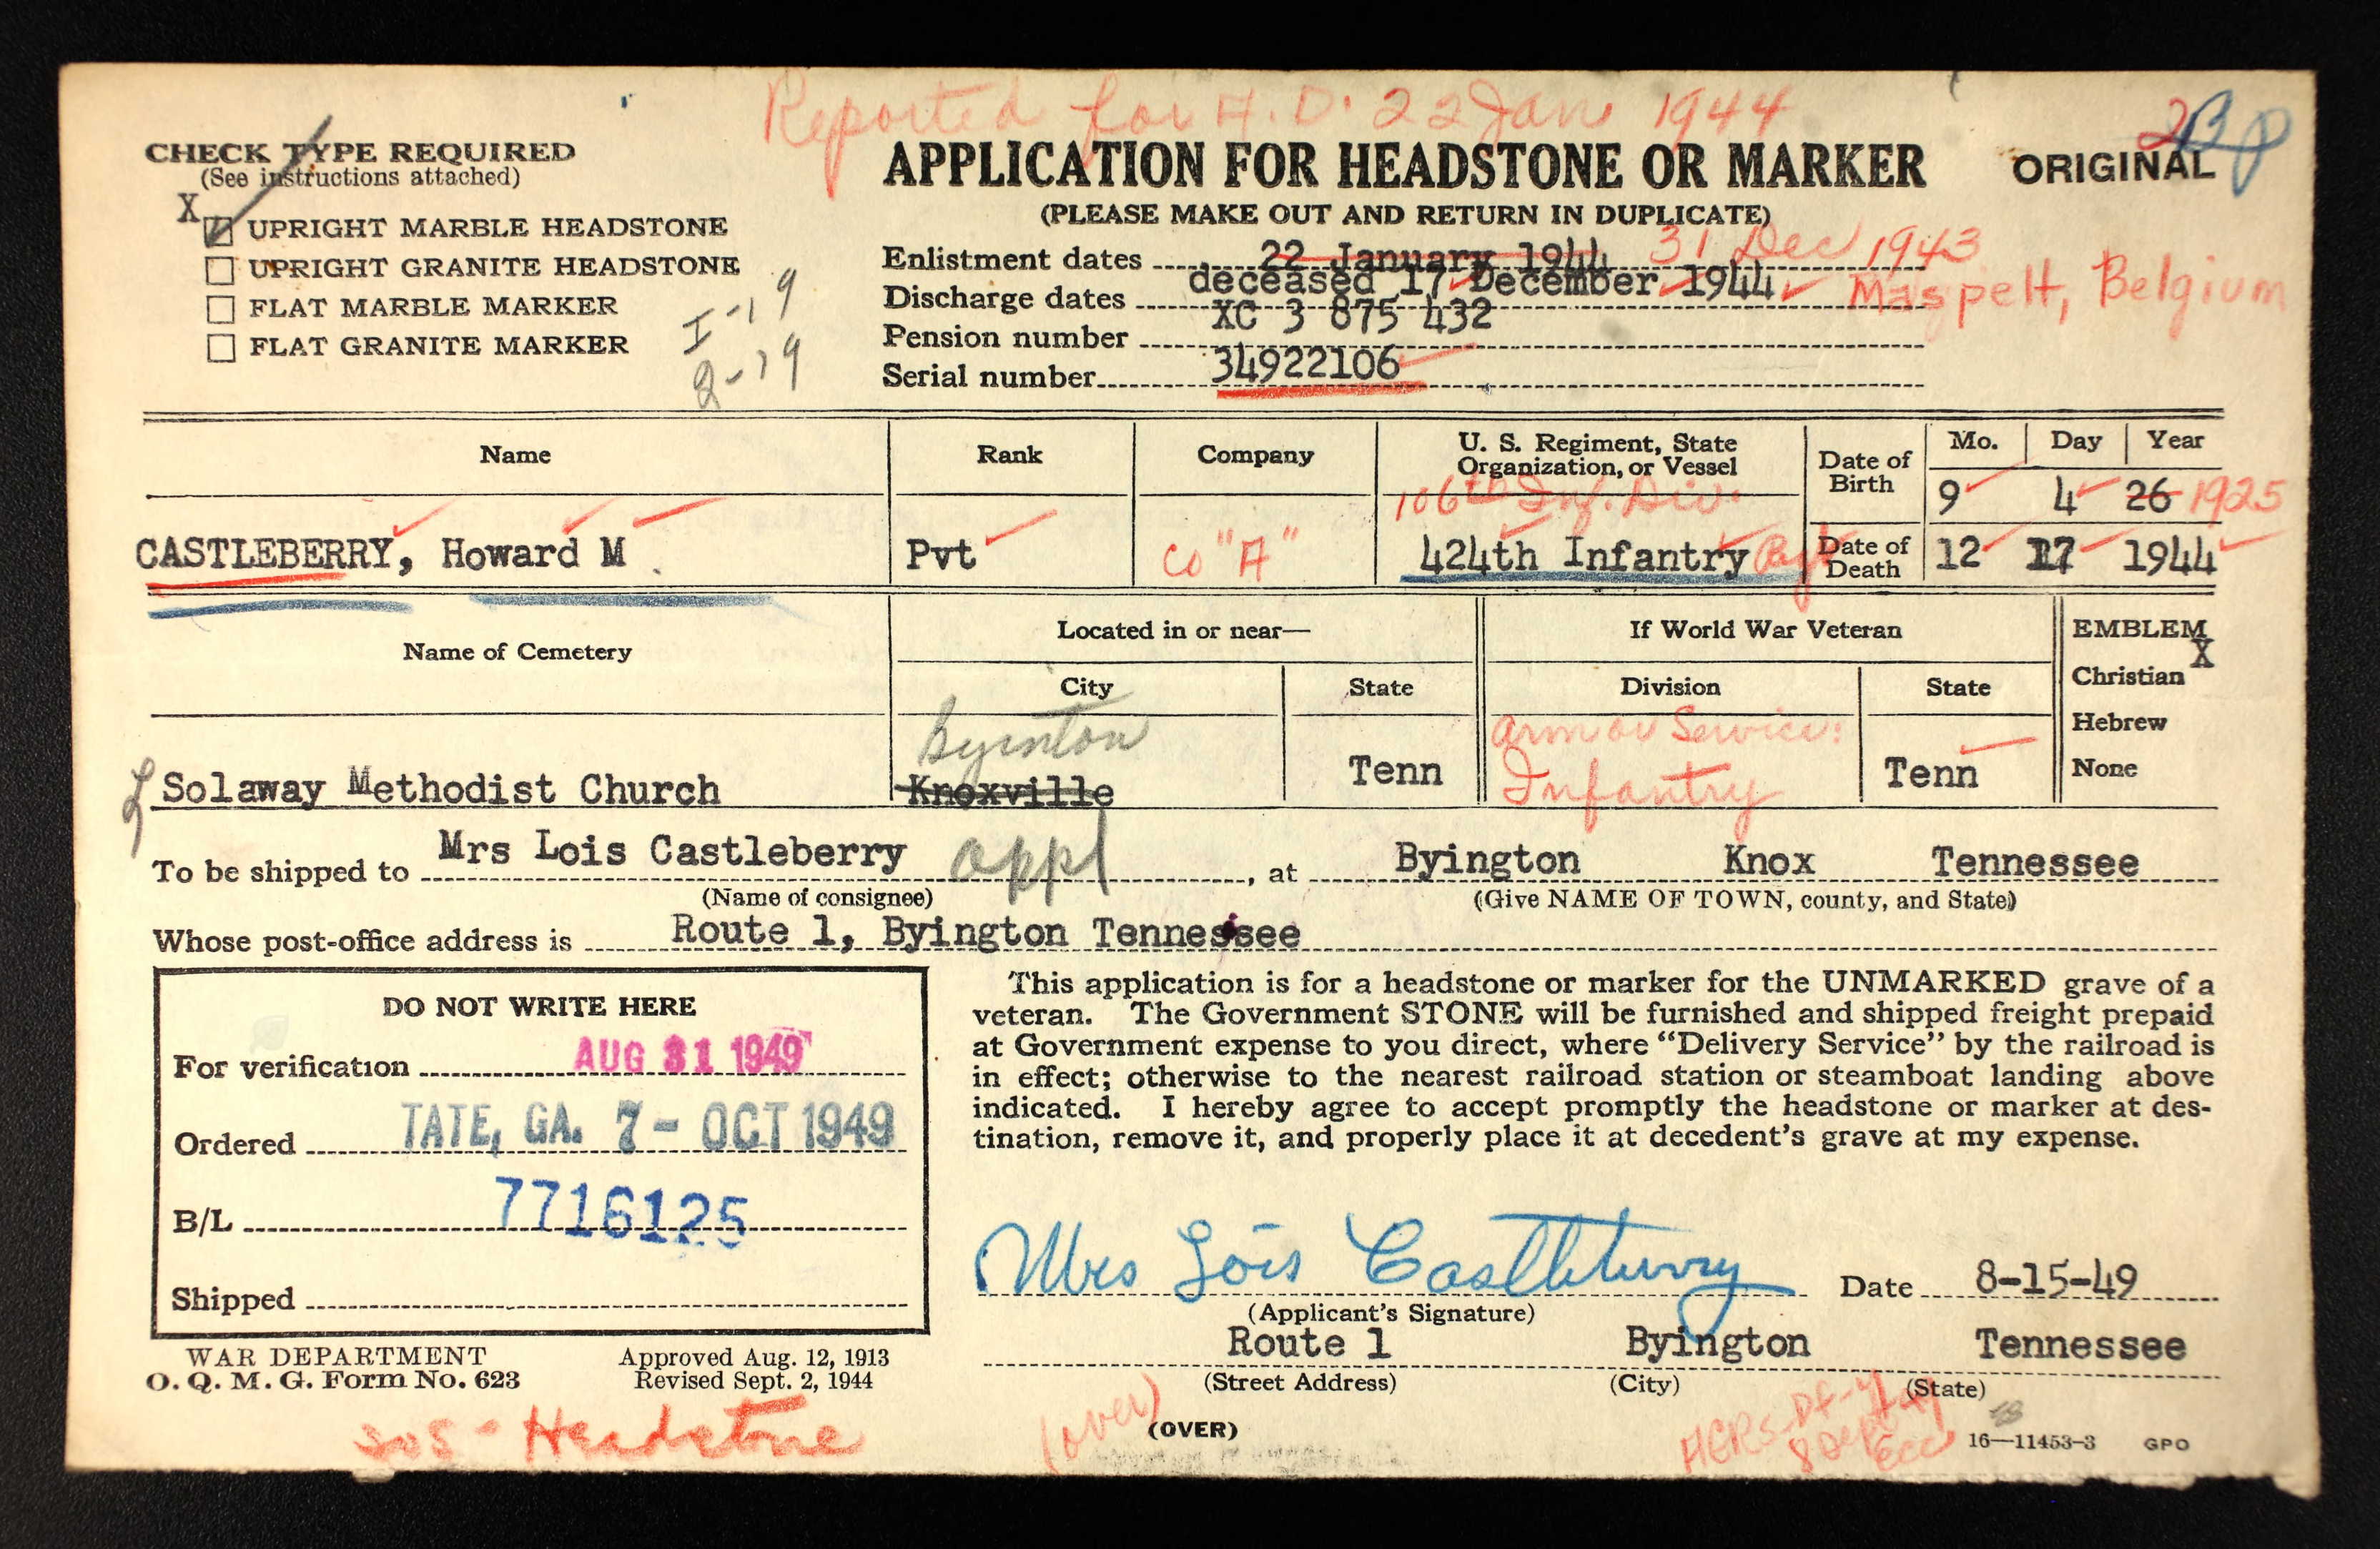 Reported for A.D. 22 Jan 1944
CHECK TYPE REQUIRED
(See instructions attached)
X UPRIGHT MARBLE HEADSTONE
UPRIGHT GRANITE HEADSTONE
FLAT MARBLE MARKER
FLAT GRANITE MARKER
I-19
2-19
APPLICATION FOR HEADSTONE OR MARKER
ORIGINAL
(PLEASE MAKE OUT AND RETURN IN DUPLICATE)
Enlistment dates 22 January 1944 31 Dec 1943
Discharge dates deceased 17 December 1944 Maspelt, Belgium
Pension number XC 3 875 432
Serial number 34922106
Name Rank Company U. S. Regiment, State Organization, or Vessel Date of Birth Mo. Day Year
106th Inf. Div. 9 4 26 1925
CASTLEBERRY, Howard M Pvt Co "A" 424th Infantry Date of Death 12 17 1944
Name of Cemetery Located in or near— If World War Veteran EMBLEM
City State Division State Christian X
Hebrew
None
Byinton Arm or Service:
Solaway Methodist Church Knoxville Tenn Infantry Tenn
To be shipped to Mrs Lois Castleberry appl, at Byington Knox Tennessee
(Name of consignee) (Give NAME OF TOWN, county, and State)
Whose post-office address is Route 1, Byington Tennessee
DO NOT WRITE HERE
For verification AUG 31 1949
Ordered TATE, GA. 7 - OCT 1949
B/L 7716125
Shipped
This application is for a headstone or marker for the UNMARKED grave of a
veteran. The Government STONE will be furnished and shipped freight prepaid
at Government expense to you direct, where "Delivery Service" by the railroad is
in effect; otherwise to the nearest railroad station or steamboat landing above
indicated. I hereby agree to accept promptly the headstone or marker at des-
tination, remove it, and properly place it at decedent's grave at my expense.
Mrs Lois Castleberry Date 8-15-49
(Applicant's Signature)
Route 1 Byington Tennessee
(Street Address) (City) (State)
WAR DEPARTMENT
O. Q. M. G. Form No. 623
Approved Aug. 12, 1913
Revised Sept. 2, 1944
Headstone
(over)
(OVER)
16—11453-3 GPO